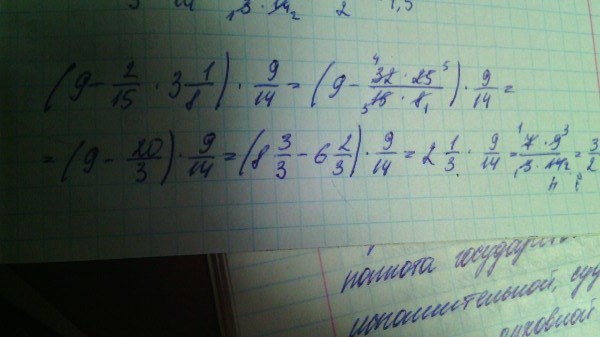 3 14 1 3 · 14 2 2 1,5
(9 − 2/15 · 3 1/8) · 9/14 = (9 − 4 32 · 25 5 / 3 15 · 8 1) · 9/14 =
= (9 − 20/3) · 9/14 = (8 3/3 − 6 2/3) · 9/14 = 2 1/3 · 9/14 = 1 7 · 9 3 / 1 3 · 14 2 = 3/2
полнота государств
исполнительной, суд